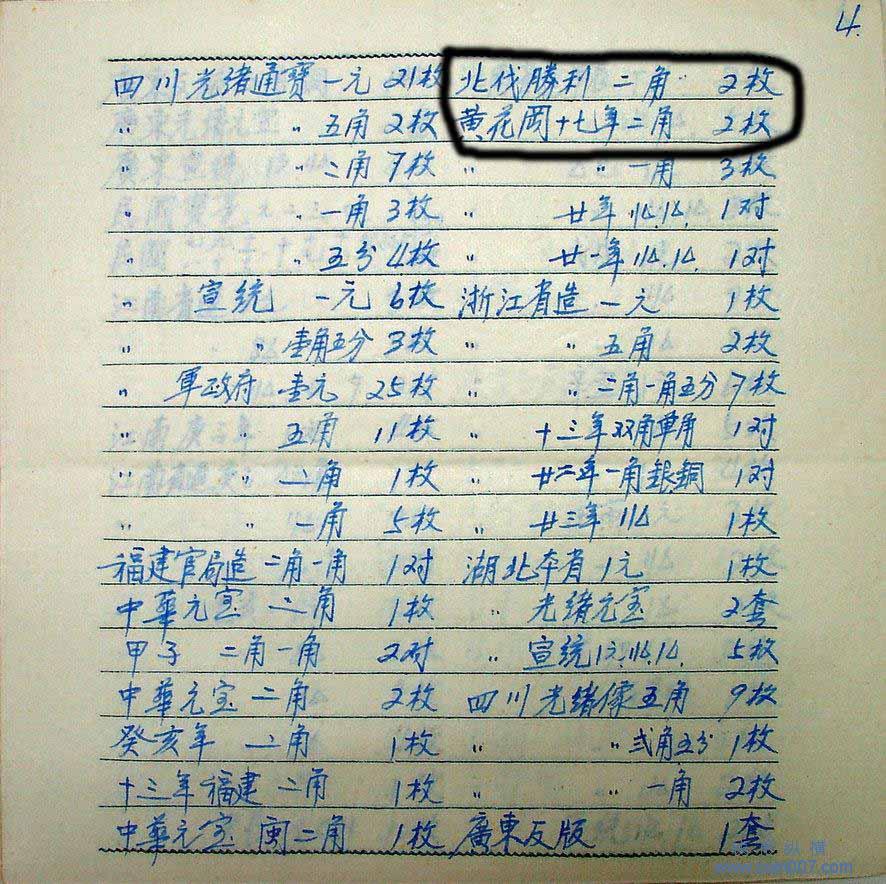 4.
四川光緒通寶一元 21枚
〃 〃 五角 2枚
〃 〃 二角 7枚
〃 〃 一角 3枚
〃 〃 五分 4枚
〃 宣統 一元 6枚
〃 〃 壹角五分 3枚
〃 軍政府 壹元 25枚
〃 〃 五角 11枚
〃 〃 二角 1枚
〃 〃 一角 5枚
福建官局造 二角一角 1对
中華元宝 二角 1枚
甲子 二角一角 2对
中華元宝 二角 2枚
癸亥年 二角 1枚
十三年福建 二角 1枚
中華元宝 闽二角 1枚
北伐勝利 二角 2枚
黄花岡十七年二角 2枚
〃 〃 一角 3枚
〃 廿年 1对
〃 廿一年 1对
浙江省造 一元 1枚
〃 〃 五角 2枚
〃 〃 二角一角五分 7枚
〃 十三年双角單角 1对
〃 廿二年一角銀銅 1对
〃 廿三年 1枚
湖北本省 1元 1枚
〃 光緒元宝 2套
〃 宣統 5枚
四川光緒像五角 9枚
〃 〃 弍角五分 1枚
〃 〃 一角 2枚
廣東反版 1套
纵横